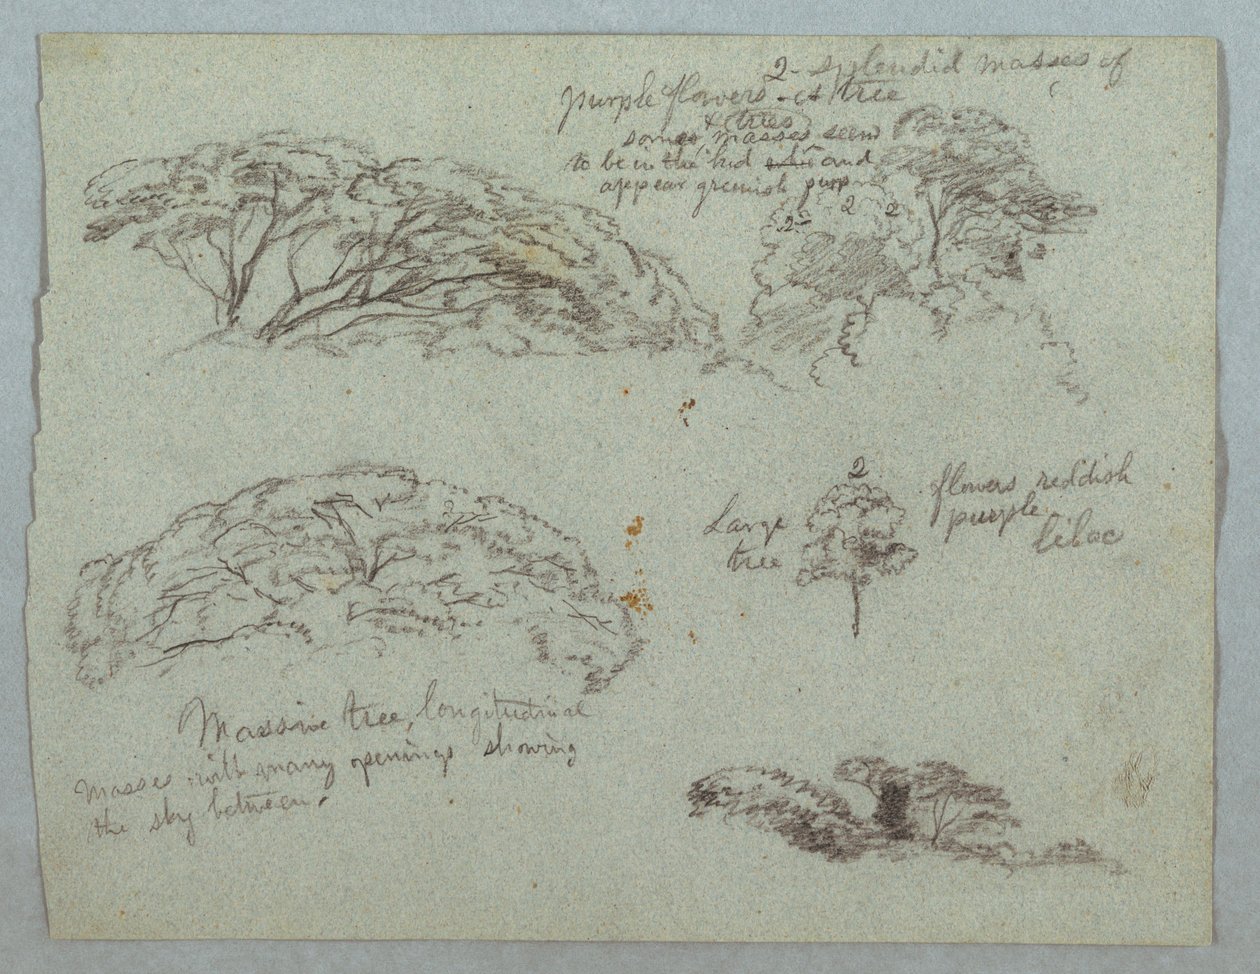 2 - splendid masses of
purple flowers - ct tree
some & masses trees seem
to be in the bud and
appear greenish purp
2 2 2
2
Large
tree
flowers reddish
purple
lilac
2
Massive tree, longitudinal
masses with many openings showing
the sky between.